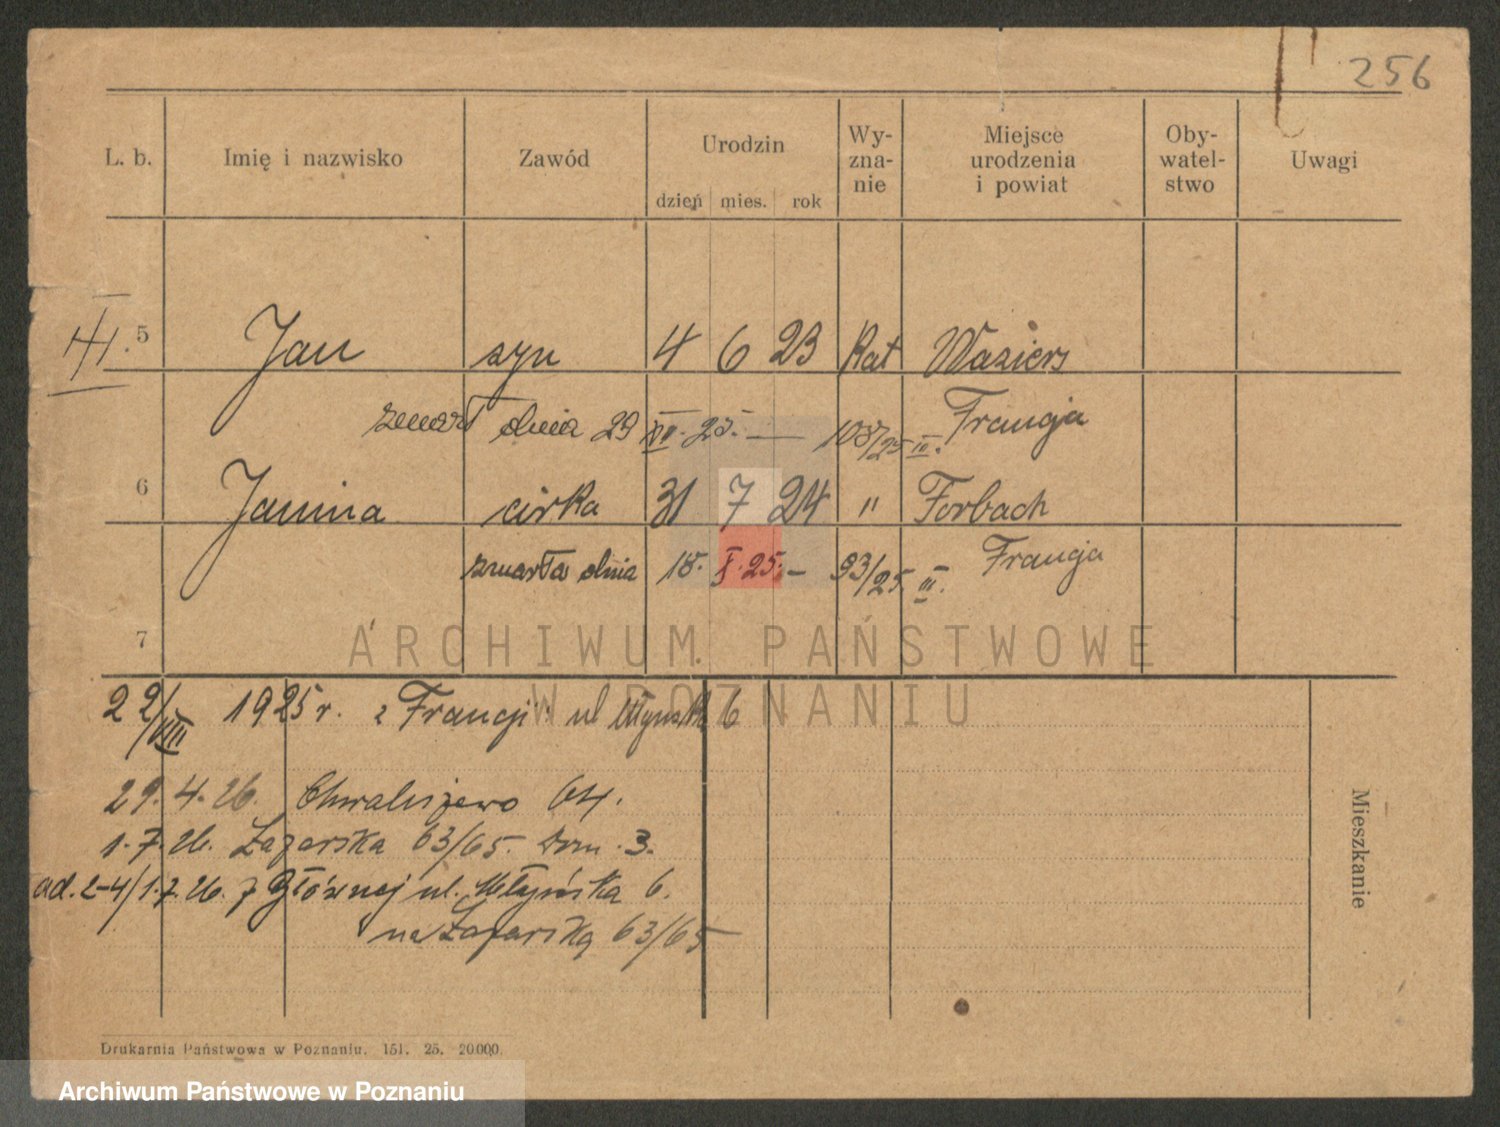 256
L. b. Imię i nazwisko Zawód Urodzin dzień mies. rok Wy-zna-nie Miejsce urodzenia i powiat Oby-watel-stwo Uwagi
III. 5 Jan syn 4 6 23 Kat Waziers
zmarł dnia 29 XII. 25. — 108/25 III. Francja
6 Janina cirka 31 7 24 " Forbach
zmarła dnia 18. X. 25. — 93/25 III. Francja
7
ARCHIWUM PAŃSTWOWE
W POZNANIU
22/VIII 1925 r. z Francji ul Młyńska 6
29. 4. 26. Chwaliszewo 64.
1. 7. 26. Łazarska 63/65. Dom. 3.
ad. 2-4/1. 7. 26. z Głównej ul. Młyńska 6.
na Łazarską 63/65 —
Mieszkanie
Drukarnia Państwowa w Poznaniu. 151. 25. 20.000.
Archiwum Państwowe w Poznaniu